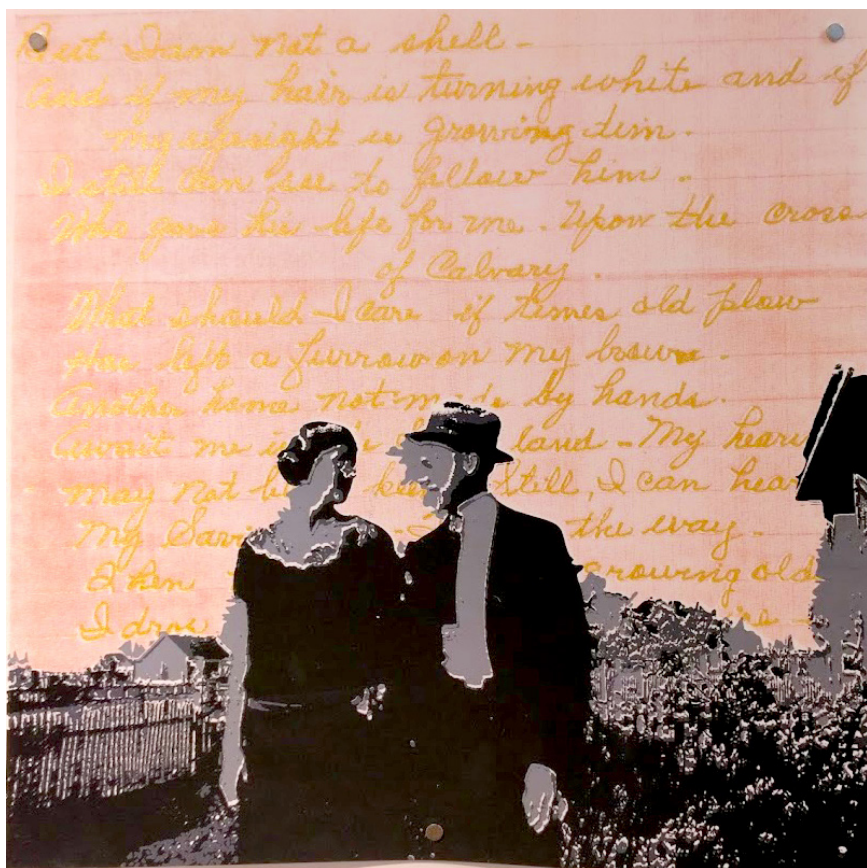 But I am not a shell -
And if my hair is turning white and if
my eyesight is growing dim.
I still can see to follow him -
Who gave his life for me. Upon the cross
of Calvary.
What should I care if times old plow
Has left a furrow on my brow.
Another home not made by hands.
Await me i land - My heari
may not b kee Still, I can hear
My Savi the way.
Then growing old
I